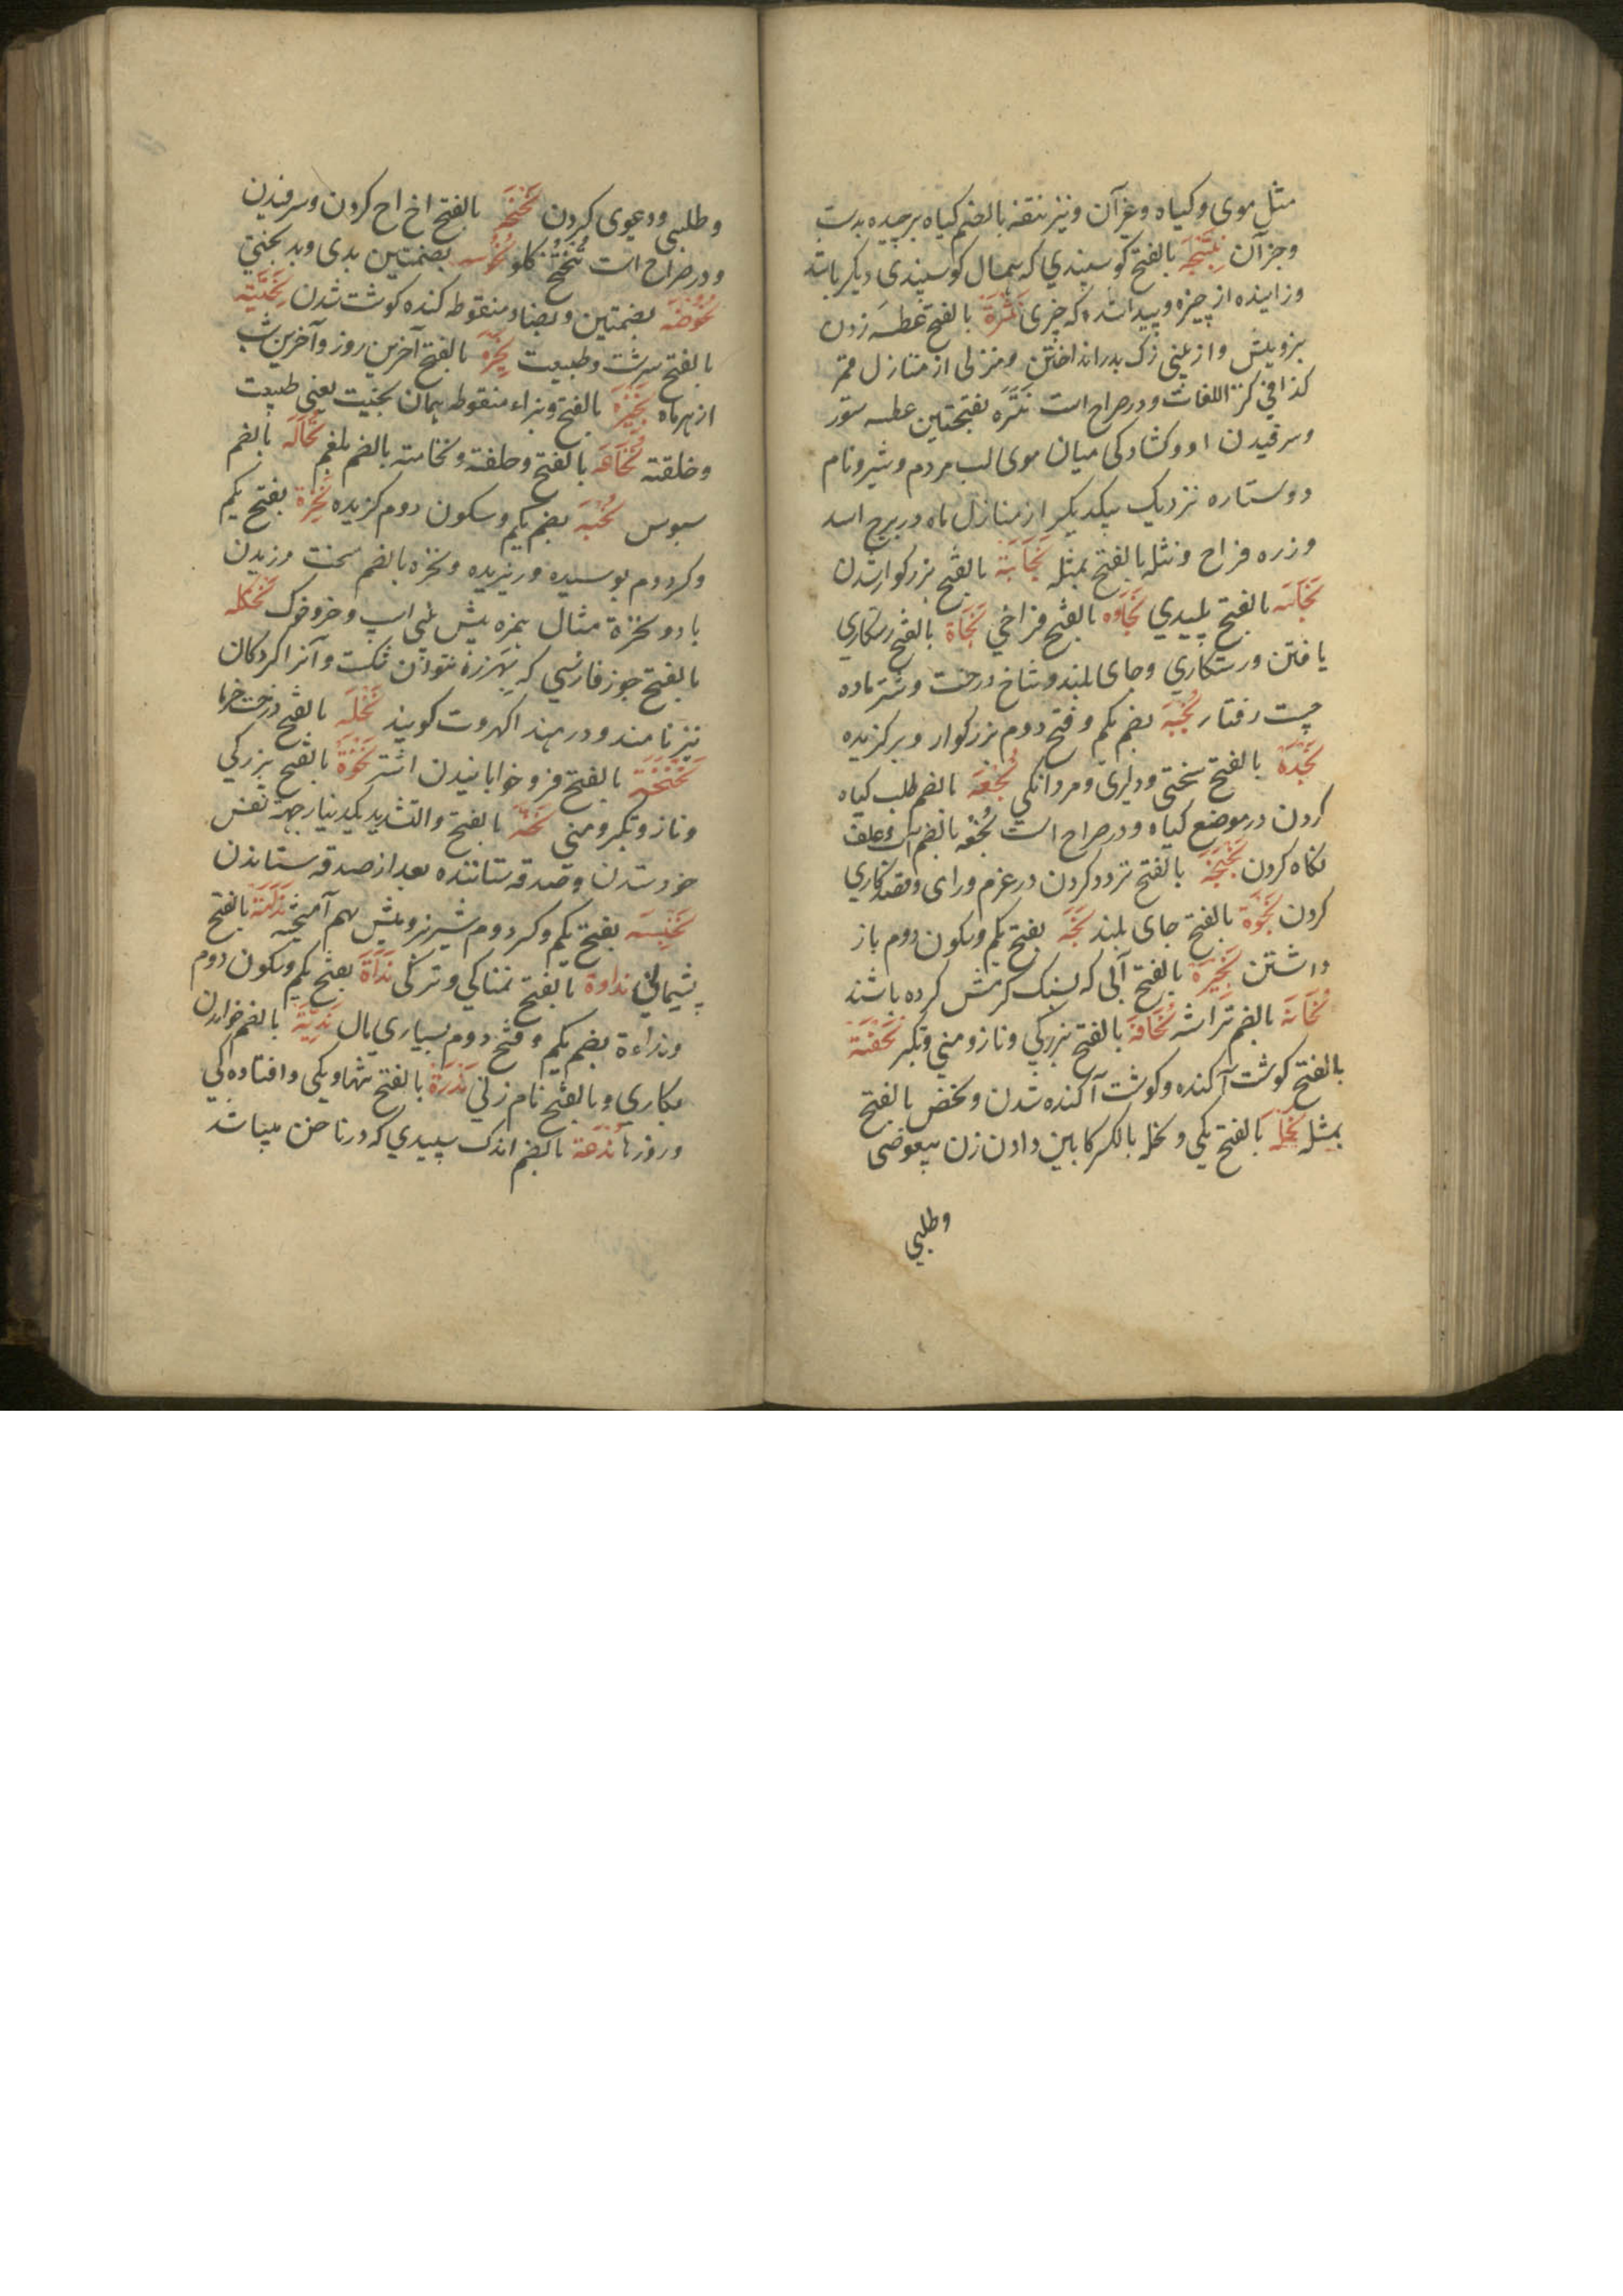 مثل موی وکیاه وغیر آن ونیز نتفه بالضم کیاه برچیده بدست
وجز آن نتیجه بالفتح کوسپندي که همسال کوسپندی دیکر باشد
وزاینده از چیزه وپیدا شده که چیزی نثرة بالفتح عطسه زدن
بز ومیش واز بینی زک بدر انداختن ومنزلی از منازل قمر
کذا فی کنز اللغات ودر صراح است نثره بفتحتین عطسه ستور
وسرفیدن او وکشادکی میان موی لب مردم وشیر ونام
دو ستاره نزدیک یکدیکر از منازل ماه در برج اسد
وزره فراخ ونثله بالفتح بمثله نجابة بالفتح بزرکوار شدن
نجاسه بالفتح پلیدي بالفتح فراخي نجاة بالفتح رستکاري
یافتن ورستکاري وجای بلند وشاخ درخت وشتر ماده
چست رفتار نجبه بضم یکم وفتح دوم بزرکوار وبرکزیده
نجدة بالفتح سختی ودلیری ومردانکی نجعه بالضم طلب کیاه
کردن در موضع کیاه ودر صراح است نجعه بالضم آب وعلف
نکاه کردن نجنجه بالفتح تردد کردن در عزم ورای وقصد کاري
کردن نجوة بالفتح جای بلند نجه بفتح یکم وسکون دوم باز
داشتن نجیرة بالفتح آبی که بسنک کرمش کرده باشند
نحاته بالضم تراشه بالفتح بزرکي وناز ومني وتکبر نحضة
بالفتح کوشت آکنده وکوشت آکنده شدن ونحض بالفتح
بمثله نحله بالفتح یکی ونحله بالکسر کابین دادن زن بیعوضی
وطلبي
وطلبی ودعوی کردن نحنحه بالفتح اخ اخ کردن وسرفیدن
ودر صراح است تنحنح کلو نحوسه بضمتین بدی وبد بختي
نحوضه بضمتین وبضاد منقوطه کنده کوشت شدن نحیته
بالفتح سرشت وطبیعت نحیره بالفتح آخرین روز وآخرین شب
از هر ماه نحیزه بالفتح وبزاء منقوطه همان نحیت یعنی طبیعت
وخلقته نخاعه بالفتح وحلفته ونخامته بالضم بلغم نخاله بالضم
سبوس نخبه بضم یکم وسکون دوم کزیده نخرة بفتح یکم
وکسر دوم بوسیده وریزیده ونخزه بالضم سخت وزیدن
باد ونخرة مثال همزه پیش بینی اسپ وخر وخوک نخکله
بالفتح جوز فارسي که بهرزه نتوان شکست وآنرا کردکان
نیز نامند ودر هند اکهروت کویند نخله بالفتح درخت خرما
نخنخة بالفتح فرو خوابانیدن اشتر نخوة بالفتح بزرکي
وناز وتکبر ومني نخه بالفتح والتشدید یکدینار جهة نفس
خود ستدن وصدقه ستاننده بعد از صدقه ستاندن
نخیسه بفتح یکم وکسر دوم شیر بز ومیش بهم آمیخته ندامة بالفتح
پشیماني نداوة بالفتح نمناکي وتر کی نداة بفتح یکم وسکون دوم
ونداءة بضم یکم وفتح دوم بسیاري مال بالضم خواندن
بکاري وبالفتح نام زني ندرة بالفتح تنهاویکی وافتاده کي
وروزها ندهة بالضم اندک سپیدي که در ناخن میباشد